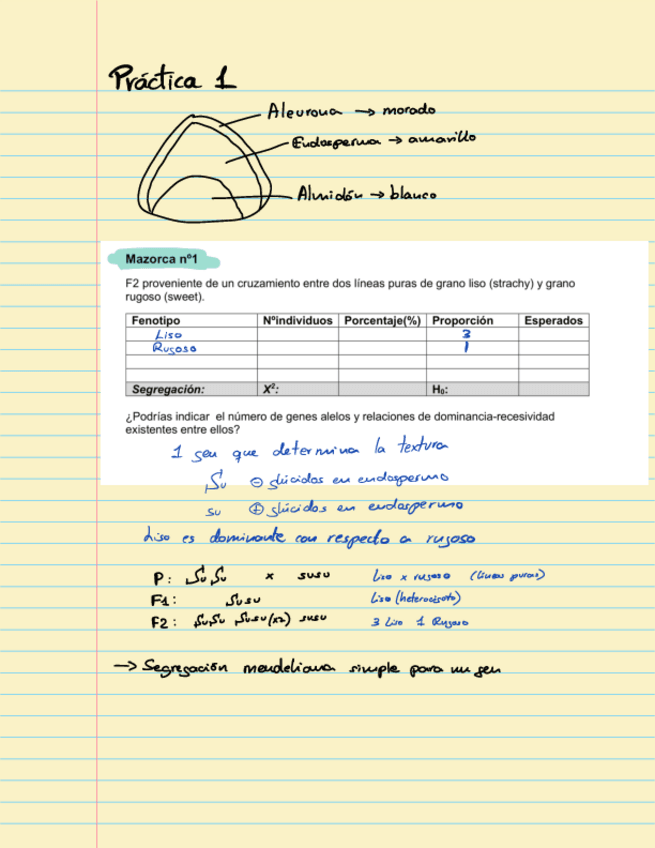 Práctica 1
Aleurona → morado
Endosperma → amarillo
Almidón → blanco
Mazorca nº1
F2 proveniente de un cruzamiento entre dos líneas puras de grano liso (strachy) y grano
rugoso (sweet).
Fenotipo Nºindividuos Porcentaje(%) Proporción Esperados
Liso 3
Rugoso 1
Segregación: X²: H₀:
¿Podrías indicar el número de genes alelos y relaciones de dominancia-recesividad
existentes entre ellos?
1 gen que determina la textura
Su ⊖ glúcidos en endospermo
su ⊕ glúcidos en endospermo
Liso es dominante con respecto a rugoso
P: SuSu x susu Liso x rugoso (líneas puras)
F1: Susu Liso (heterocigoto)
F2: SuSu Susu(x2) susu 3 Liso 1 Rugoso
→ Segregación mendeliana simple para un gen